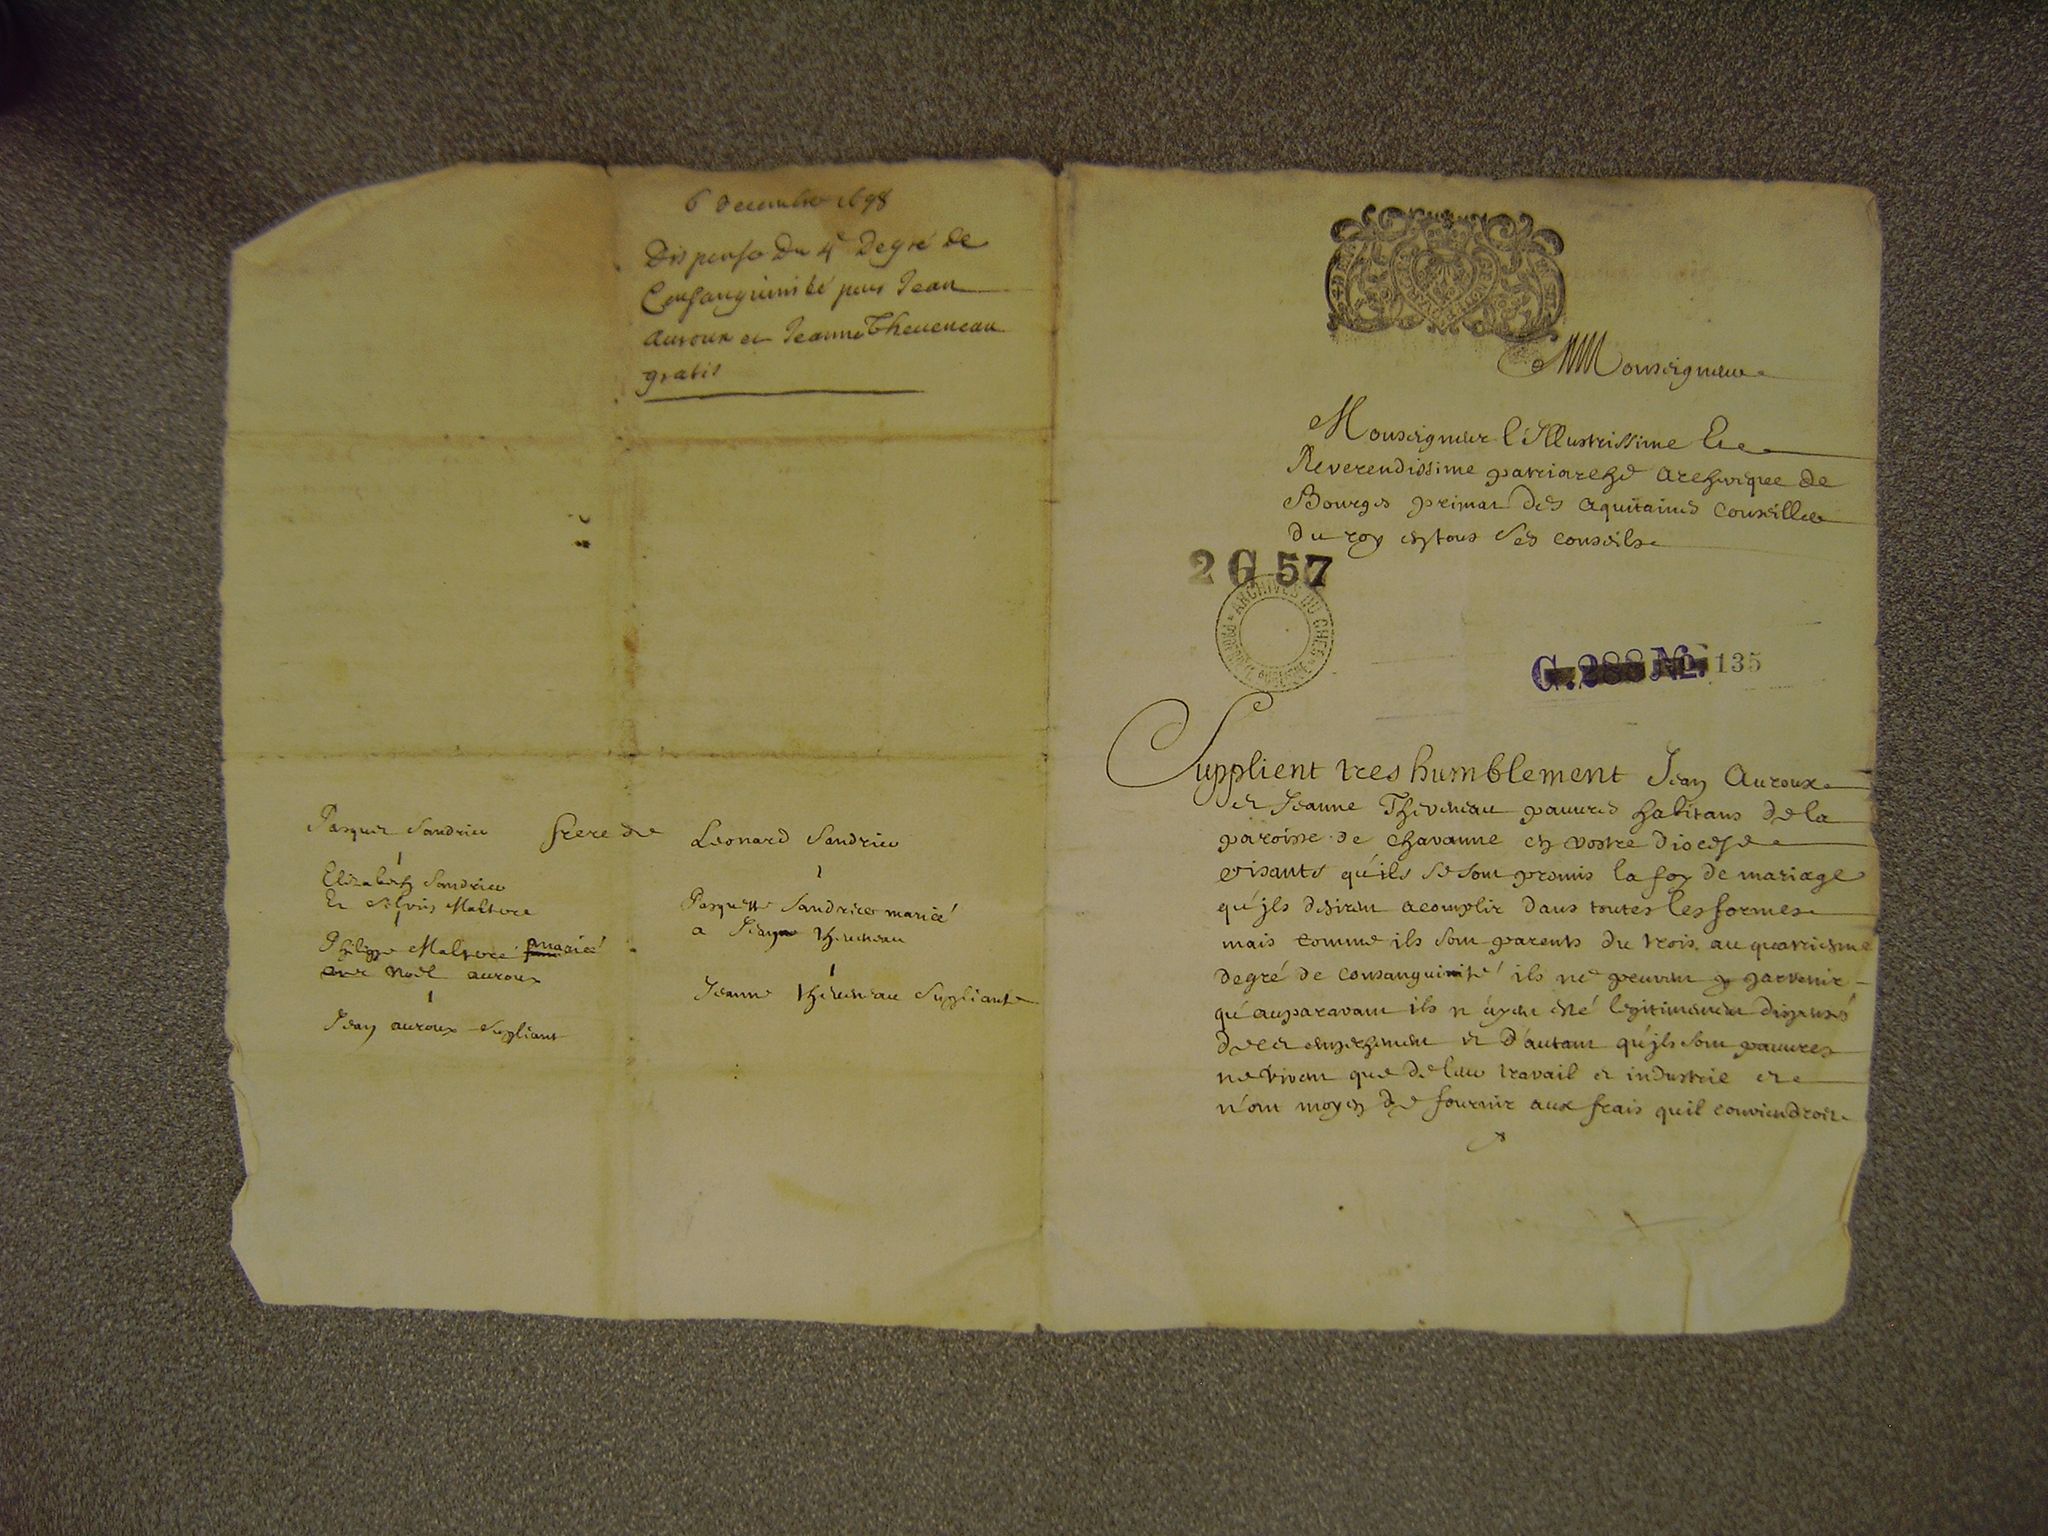 6 decembre 1698
Dispense Du 4e Degré de
Consanguinité pour Jean
auroux et Jeanne Theueneau
gratis
Pasquet Sandrier frere de Leonard Sandrier
Elizabeth Sandrier
Et Silvin Maltere
Pasquette Sandrier mariée
a Jean theueneau
Philippe Maltere mariée
avec Noël auroux
Jeanne theueneau Supliante
Jean auroux Supliant
Monseigneur
Monseigneur l'Illustrissime Et
Reverendissime patriarche archeveque de
Bourges primat des aquitaines Conseiller
du roy en tous ses conseils
2 G 57
ARCHIVES DU CHER
C. 288 No. 135
Supplient tres humblement Jean Auroux
et Jeanne Theveneau pauures habitans de la
paroisse de Chavanne en vostre diocese
disants qu'ils se sont promis la foy de mariage
qu'jls desirent acomplir dans toutes les formes
mais comme ils sont parents du trois au quatriesme
degré de consanguinité ils ne peuvent y parvenir
qu'auparavant ils n'ayent esté legitimement dispensés
de cet empechement et d'autant qu'jls sont pauures
ne vivent que de leur travail et industrie et
n'ont moyen de fournir aux frais quil conviendroit